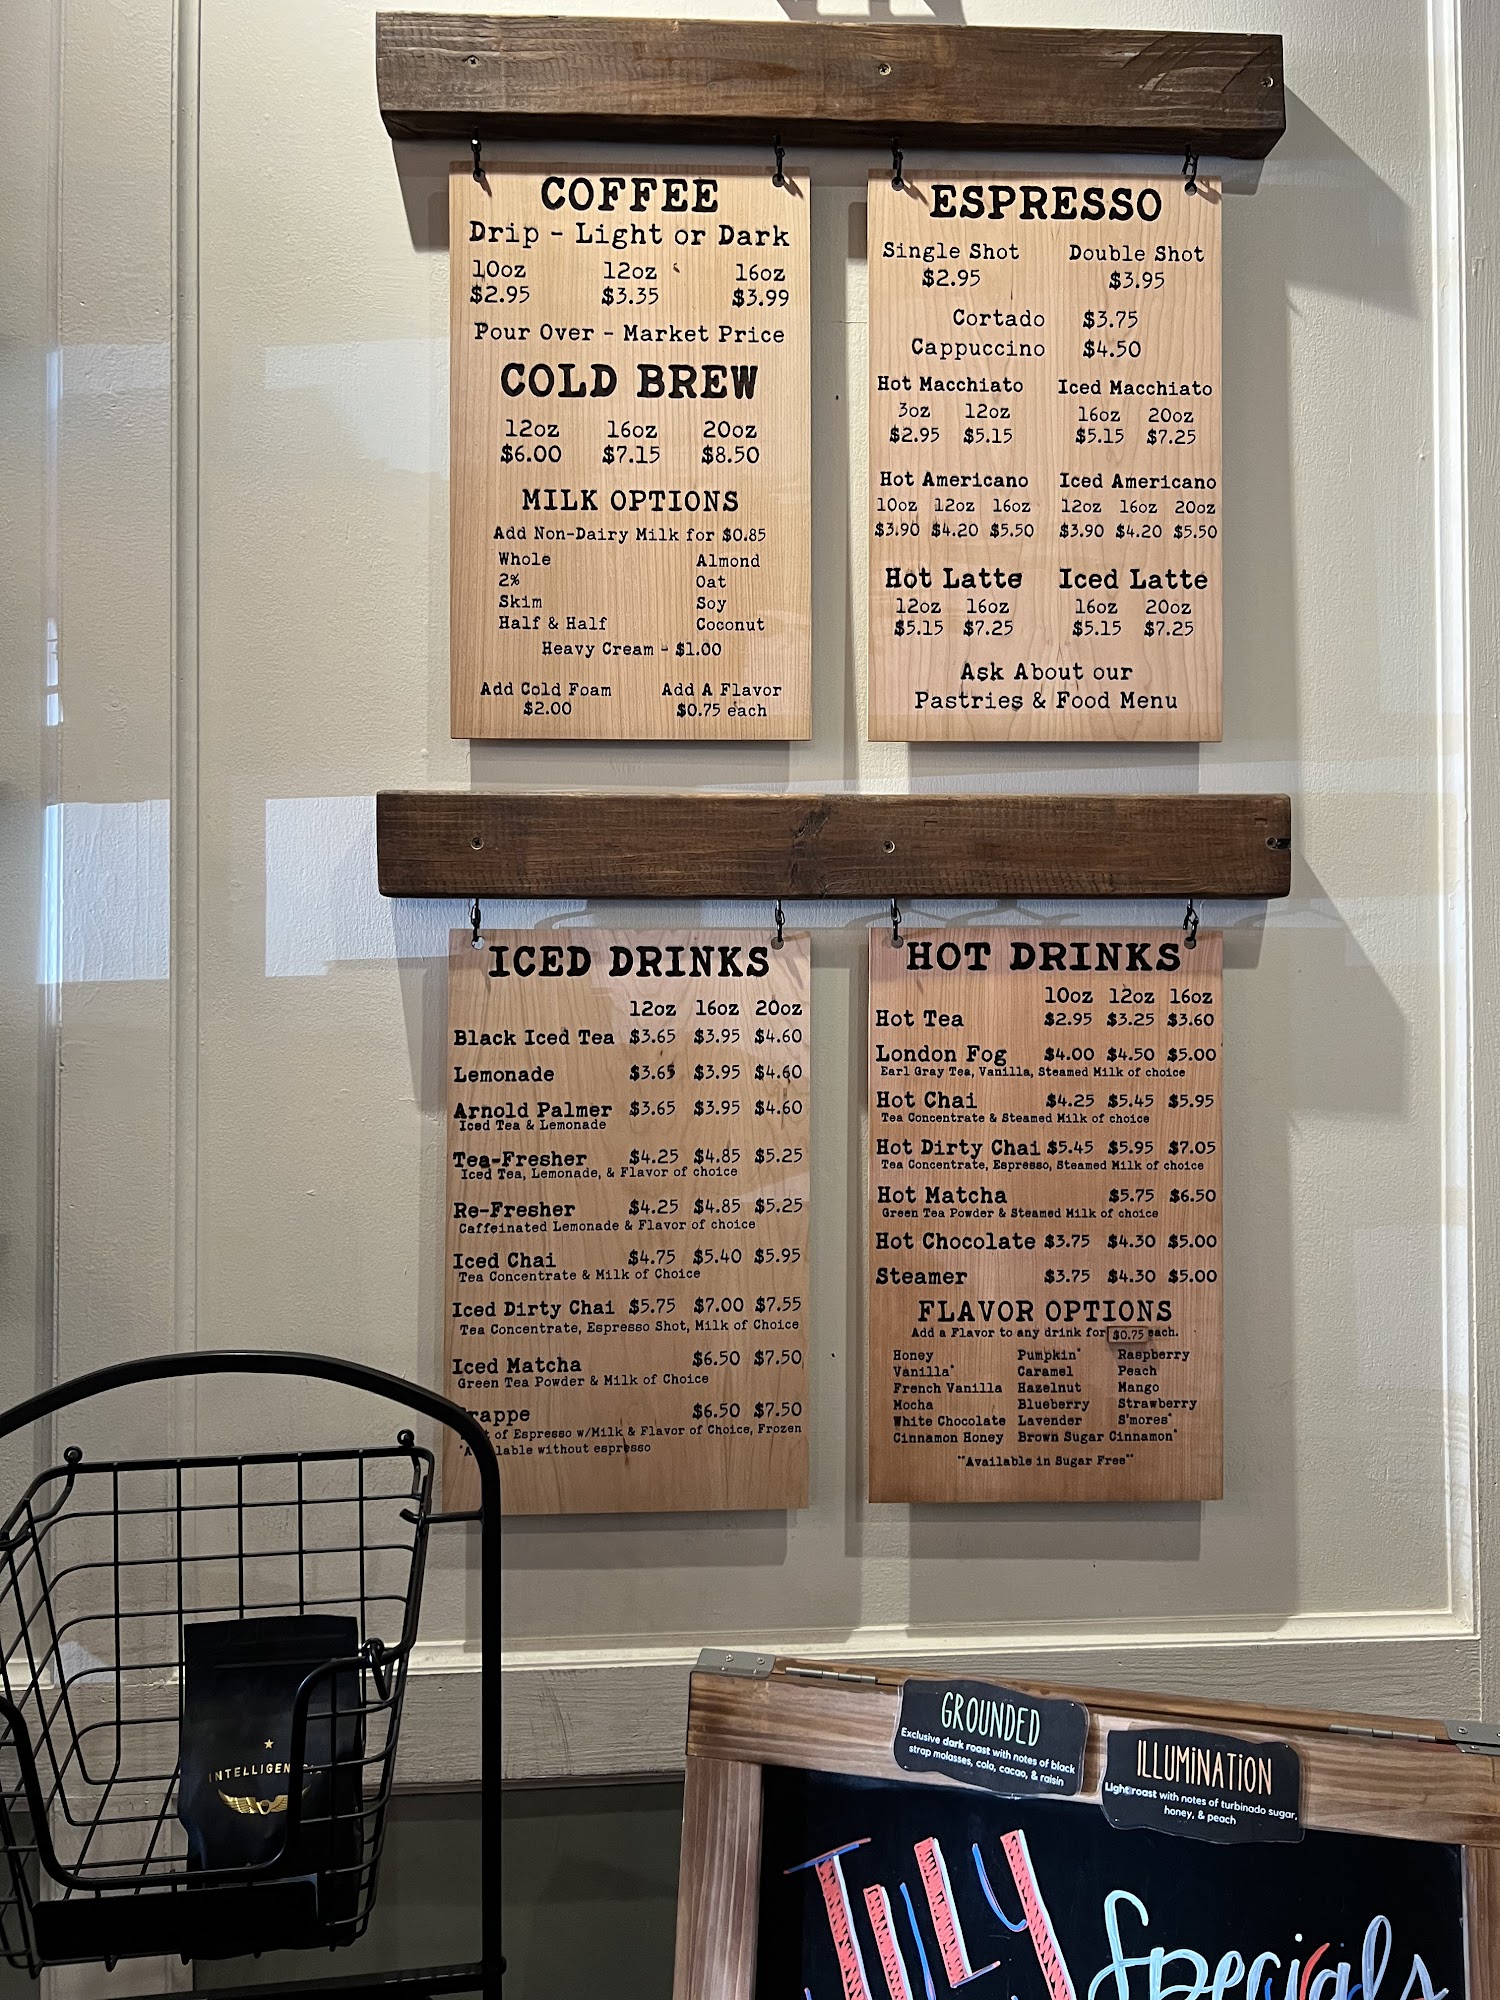 COFFEE
Drip - Light or Dark
10oz 12oz 16oz
$2.95 $3.35 $3.99
Pour Over - Market Price
COLD BREW
12oz 16oz 20oz
$6.00 $7.15 $8.50
MILK OPTIONS
Add Non-Dairy Milk for $0.85
Whole Almond
2% Oat
Skim Soy
Half & Half Coconut
Heavy Cream - $1.00
Add Cold Foam Add A Flavor
$2.00 $0.75 each
ESPRESSO
Single Shot Double Shot
$2.95 $3.95
Cortado $3.75
Cappuccino $4.50
Hot Macchiato Iced Macchiato
3oz 12oz 16oz 20oz
$2.95 $5.15 $5.15 $7.25
Hot Americano Iced Americano
10oz 12oz 16oz 12oz 16oz 20oz
$3.90 $4.20 $5.50 $3.90 $4.20 $5.50
Hot Latte Iced Latte
12oz 16oz 16oz 20oz
$5.15 $7.25 $5.15 $7.25
Ask About our
Pastries & Food Menu
ICED DRINKS
12oz 16oz 20oz
Black Iced Tea $3.65 $3.95 $4.60
Lemonade $3.65 $3.95 $4.60
Arnold Palmer $3.65 $3.95 $4.60
Iced Tea & Lemonade
Tea-Fresher $4.25 $4.85 $5.25
Iced Tea, Lemonade, & Flavor of choice
Re-Fresher $4.25 $4.85 $5.25
Caffeinated Lemonade & Flavor of choice
Iced Chai $4.75 $5.40 $5.95
Tea Concentrate & Milk of Choice
Iced Dirty Chai $5.75 $7.00 $7.55
Tea Concentrate, Espresso Shot, Milk of Choice
Iced Matcha $6.50 $7.50
Green Tea Powder & Milk of Choice
rappe $6.50 $7.50
of Espresso w/Milk & Flavor of Choice, Frozen
lable without espresso
HOT DRINKS
10oz 12oz 16oz
Hot Tea $2.95 $3.25 $3.60
London Fog $4.00 $4.50 $5.00
Earl Gray Tea, Vanilla, Steamed Milk of choice
Hot Chai $4.25 $5.45 $5.95
Tea Concentrate & Steamed Milk of choice
Hot Dirty Chai $5.45 $5.95 $7.05
Tea Concentrate, Espresso, Steamed Milk of choice
Hot Matcha $5.75 $6.50
Green Tea Powder & Steamed Milk of choice
Hot Chocolate $3.75 $4.30 $5.00
Steamer $3.75 $4.30 $5.00
FLAVOR OPTIONS
Add a Flavor to any drink for $0.75 each.
Honey Pumpkin* Raspberry
Vanilla* Caramel Peach
French Vanilla Hazelnut Mango
Mocha Blueberry Strawberry
White Chocolate Lavender S'mores*
Cinnamon Honey Brown Sugar Cinnamon*
**Available in Sugar Free**
INTELLIGEN
GROUNDED
Exclusive dark roast with notes of black
strap molasses, cola, cacao, & raisin
ILLUMiNATiON
Light roast with notes of turbinado sugar,
honey, & peach
JULY Specials